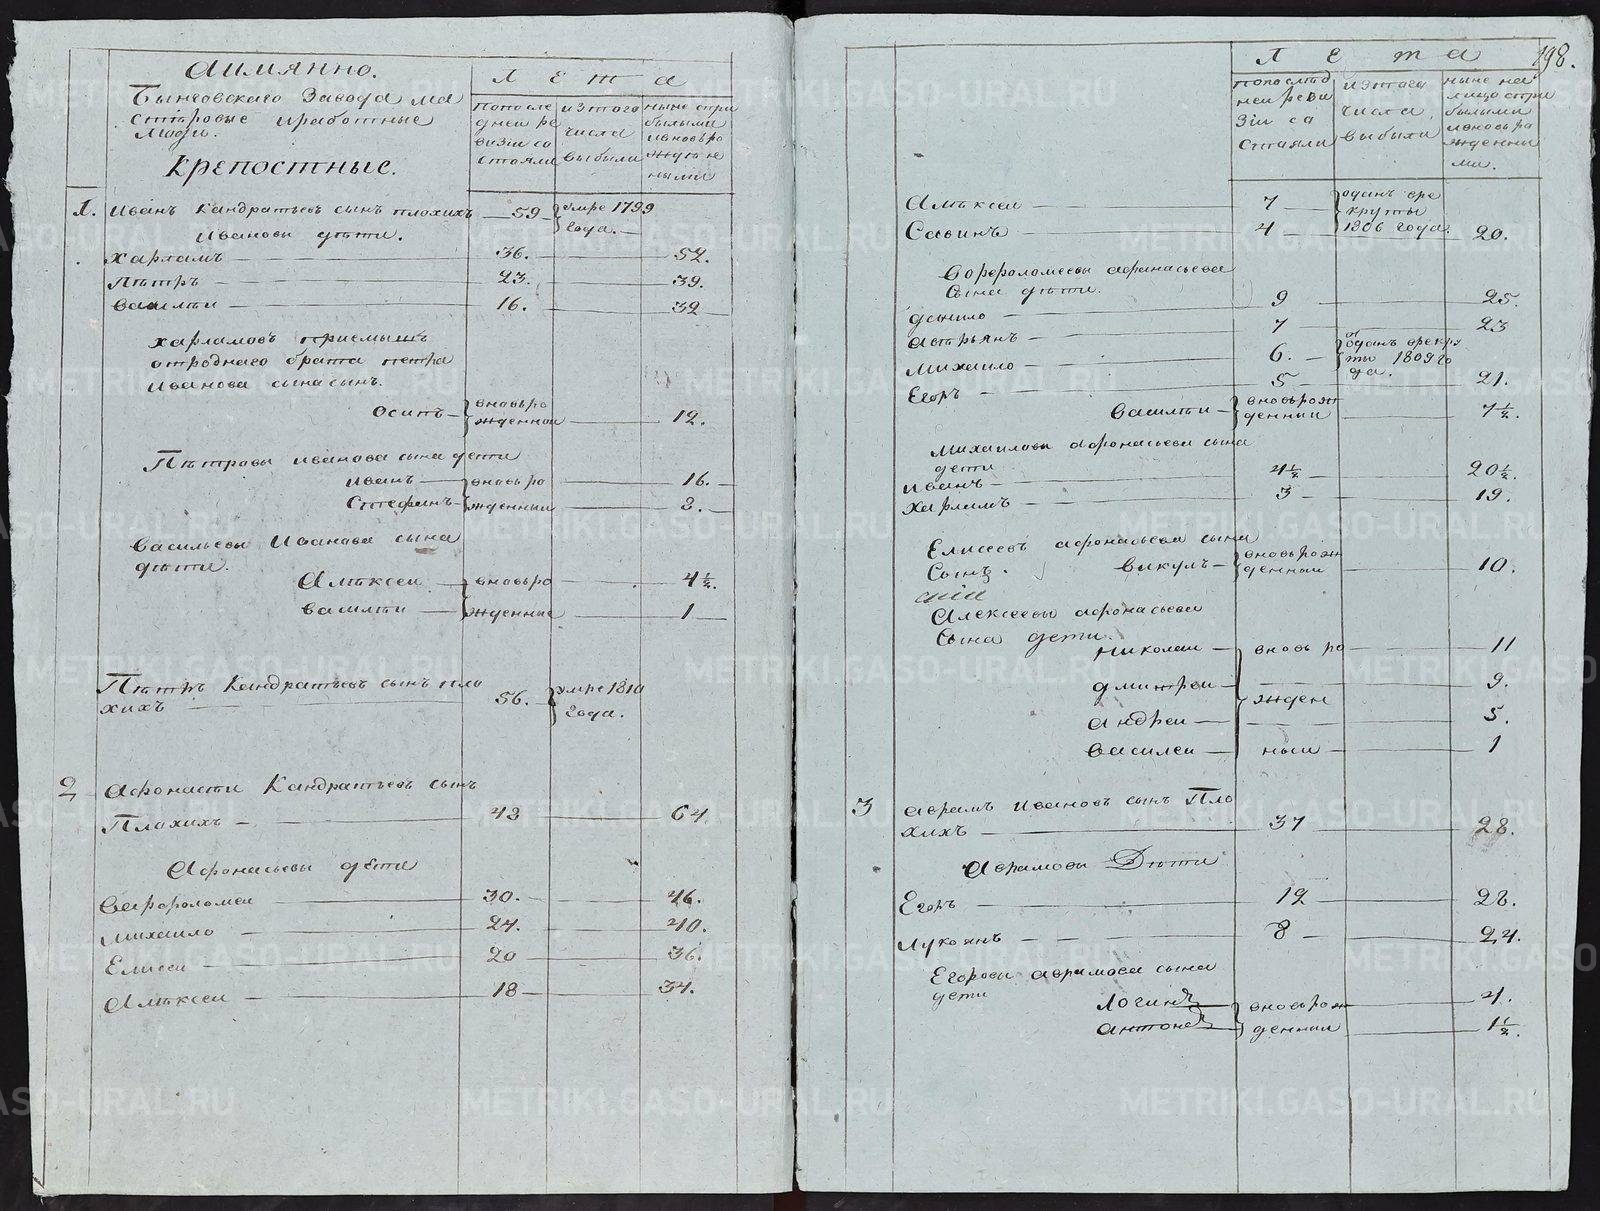 аимянно.
Бынговскаго Завода ма
стѣровые иработные
люди.
Крепостные.
Л е т а
попосле
дней ре
визiи со
стояли
изтого
числа
выбыли
ныне спри
былыми
ивновьро
жденe
ными
1. Иванъ Кандратьевъ сынъ плохихъ 59 умре 1799
года.
Ивановы дѣти.
Харламъ 36. 52.
Пѣтръ 23. 39.
Васил�ѣи 16. 32
харламовъ приемышъ
отроднаго брата петра
Иванова сына сынъ.
Осипъ вновьро
жденнои 12.
Пѣтровы иванова сына дѣти
иванъ вновьро 16.
Стефанъ жденныи 3.
Васильевы Иванова сына
дѣти.
Алѣксеи вновьро 4½.
Василѣи жденные 1
Пѣтръ Кандратьевъ сынъ пло
хихъ 56. умре 1810
года.
2 Афонасѣи Кандратьевъ сынъ
Плохихъ 48 64
Афонасьевы дѣти
Варфоломеи 30. 46.
Михаило 24. 40.
Елисеи 20 36.
Алѣксеи 18 34.
198.
Л е т а
попослѣд
неи реви
Зiи со
стояли
изтого
числа
выбыли
ныне на
лицо спри
былыми
ивновь ро
жденны
ми.
Алѣксеи 7 одинъ вре
круты
Савинъ 4 1806 года. 20.
Ворфоломеевы афанасьева
Сына дѣти.
данило 9 25.
Астрьянъ 7 23
Михаило 6. одинъ врекру
ты 1809 го
да.
Егоръ 5 21.
Василѣи вновьрож
денныи 7½.
Михаиловы Афонасьева сына
дети
Иванъ 4½ 20½.
Харламъ 3 19.
Елисеевъ афонасьева сына
Сынъ. викулъ вновьрож
денныи 10.
Алексеевы афонасьева
Сына дети.
николаи вновь ро 11
дмитреи 9.
жден
андреи 5.
василеи ныи 1
3 аврамъ Ивановъ сынъ Пло
хихъ 37 28.
Аврамовы Дѣти
Егоръ 12 28.
Лукоянъ 8 24.
Егоровы аврамова сына
дети
Логинъ вновьрож 4.
антонъ денныи 1½.
METRIKI.GASO-URAL.RU